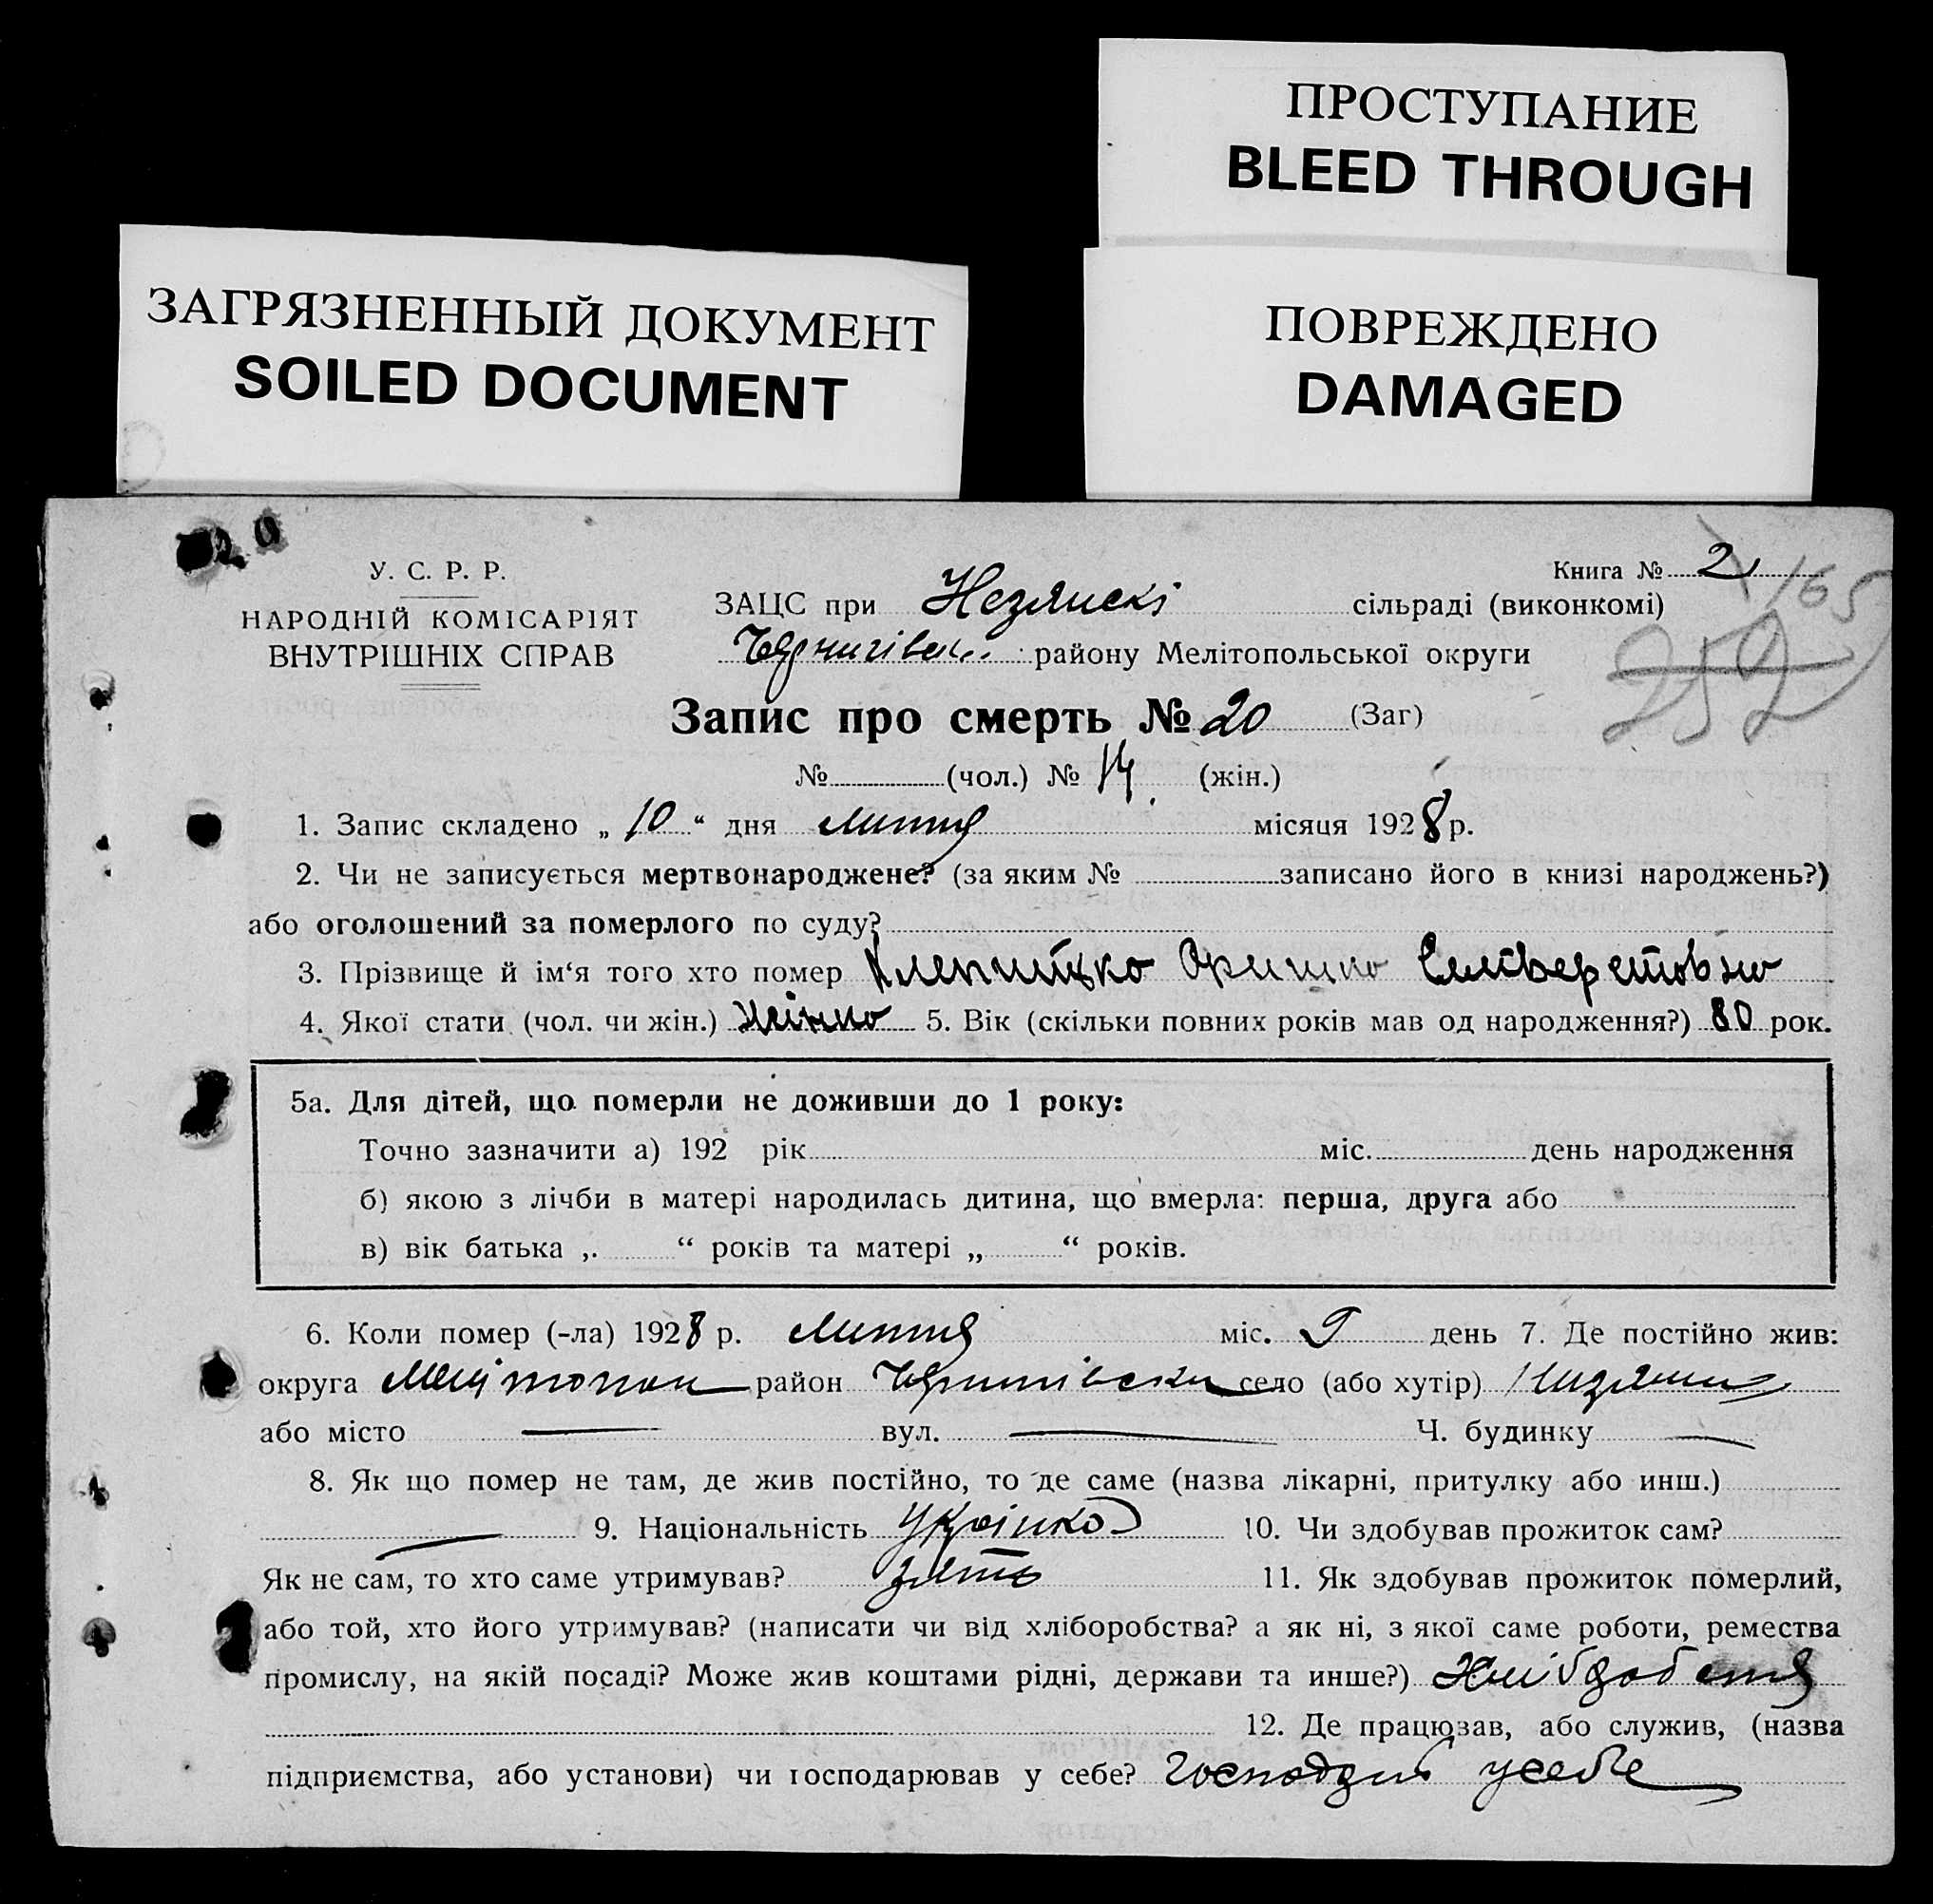 ПРОСТУПАНИЕ
BLEED THROUGH
ЗАГРЯЗНЕННЫЙ ДОКУМЕНТ
SOILED DOCUMENT
ПОВРЕЖДЕНО
DAMAGED
У. С. Р. Р.
НАРОДНІЙ КОМІСАРІЯТ
ВНУТРІШНІХ СПРАВ
Книга № 2
165
252
ЗАЦС при сільраді (виконкомі)
району Мелітопольської округи
Запис про смерть № 20 (Заг)
№ (чол.) № 14 (жін.)
1. Запис складено „ 10 “ дня липня місяця 1928 р.
2. Чи не записується мертвонароджене? (за яким № записано його в книзі народжень?)
або оголошений за померлого по суду?
3. Прізвище й ім‘я того хто помер Оришка
4. Якої стати (чол. чи жін.) жінка 5. Вік (скільки повних років мав од народження?) 80 рок.
5а. Для дітей, що померли не доживши до 1 року:
Точно зазначити а) 192 рік міс. день народження
б) якою з лічби в матері народилась дитина, що вмерла: перша, друга або
в) вік батька „ “ років та матері „ “ років.
6. Коли помер (-ла) 1928 р. липня міс. 9 день 7. Де постійно жив:
округа район село (або хутір)
або місто — вул. — Ч. будинку —
8. Як що помер не там, де жив постійно, то де саме (назва лікарні, притулку або инш.)
— 9. Національність 10. Чи здобував прожиток сам?
Як не сам, то хто саме утримував? зять 11. Як здобував прожиток померлий,
або той, хто його утримував? (написати чи від хліборобства? а як ні, з якої саме роботи, ремества
промислу, на якій посаді? Може жив коштами рідні, держави та инше?)
12. Де працював, або служив, (назва
підприємства, або установи) чи господарював у себе? усебе